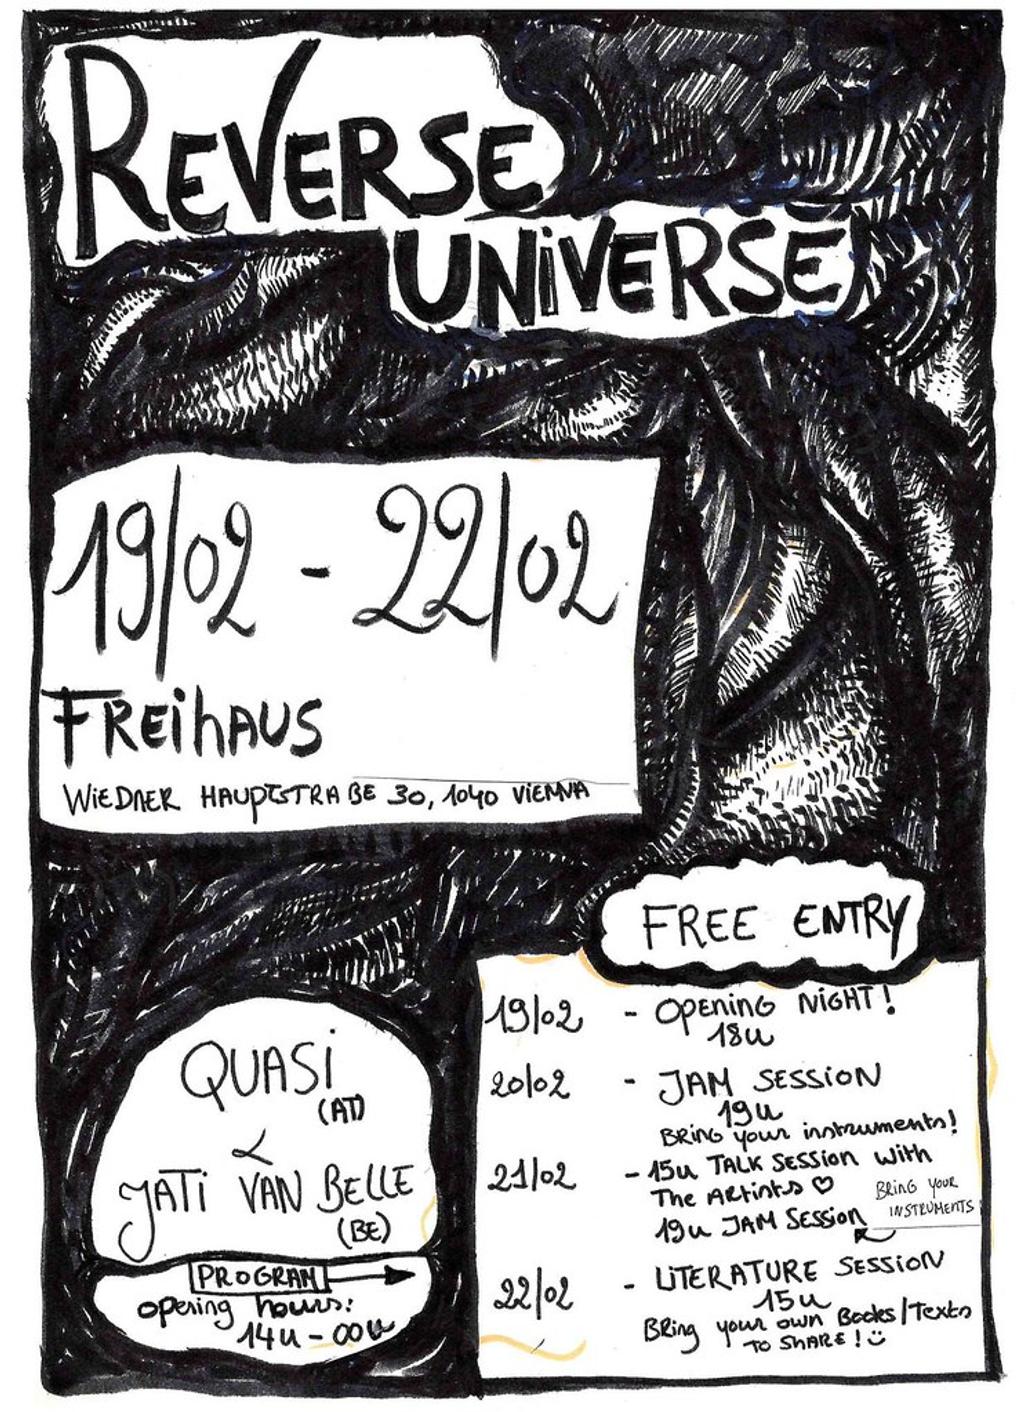 REVERSE
UNIVERSE
19/02 - 22/02
FREIHAUS
WIEDNER HAUPTSTRAßE 30, 1040 VIENNA
FREE ENTRY
QUASI
(AT)
&
JATI VAN BELLE
(BE)
PROGRAM
opening hours:
14u - 00u
19/02 - OPENING NIGHT!
18u
20/02 - JAM SESSION
19u
BRING your instruments!
21/02 - 15u TALK SESSION with
The ARTISTS ♡
19u JAM SESSION
BRING YOUR
INSTRUMENTS
22/02 - LITERATURE SESSION
15u
BRING your own Books/Texts
TO SHARE! :)